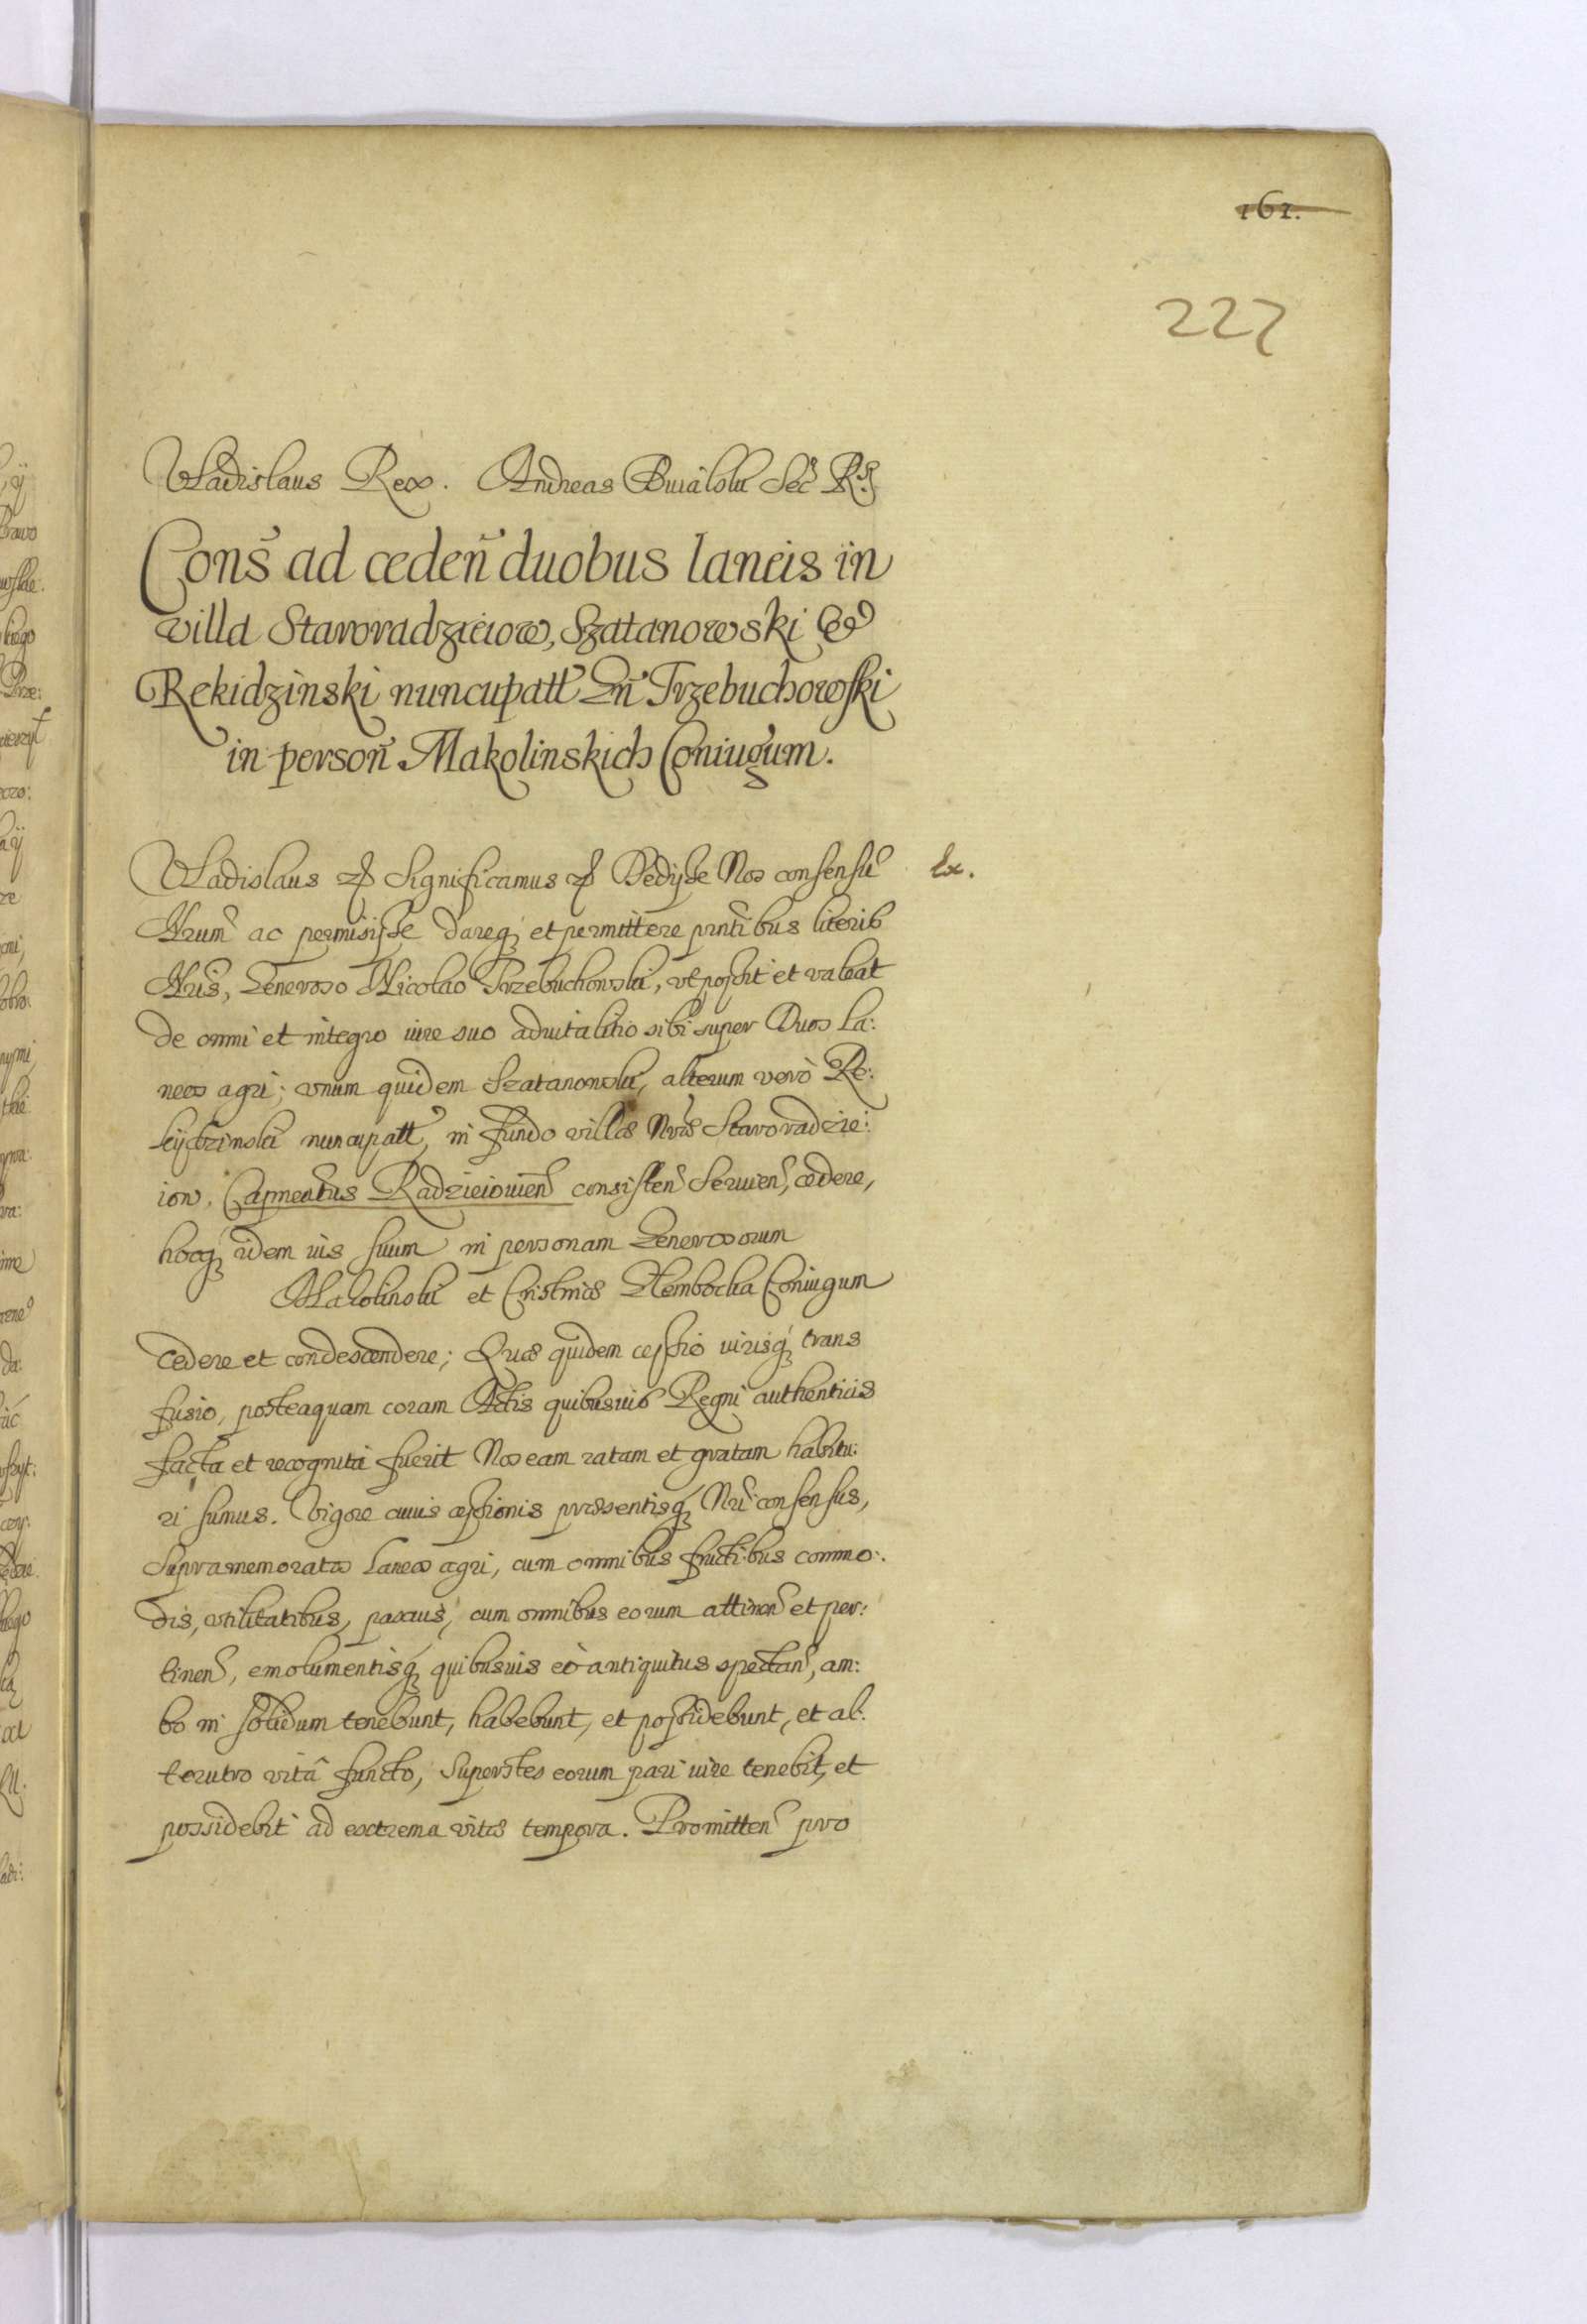 161.
227
Vladislaus Rex. Andreas Buialski Sec R.
Cons̃ ad cedeñ duobus laneis in
villa Staroradzieiow, Szatanowski et
Rekidzinski nuncupatt Gñ Trzebuchowski
in persoñ Makolinskich Coniugum.
Vladislaus etc Significamus etc Dedisse Nos consensũ
Ex.
Nrum ac permisisse dareq; et permittere pntibus literis
Nris, Generoso Nicolao Trzebuchowski, ut possit et valeat
de omni et integro iure suo aduitalitio sibi super Duos La:
neos agri; unum quidem Szatanowski, alterum verò Re:
kijdzinski nuncupatt, in fundo villæ Nræ Staroradzie:
iow. Capneatus Radzieiouien consisten Seruien, cædere,
hocq; idem ius suum in personam Generosorum
Makolinski et Cristinæ Glembocka Coniugum
cedere et condescendere; Quæ quidem cessio iurisq; trans
fusio, posteaquam coram Actis quibusuis Regni authenticis
facta et recognita fuerit Nos eam ratam et gratam habitu:
ri sumus. Vigore cuius cessionis præsentisq; Nri consensus,
Supramemoratos Laneos agri, cum omnibus fructibus commo:
dis, utilitatibus, pascuis, cum omnibus eorum attinen et per:
tinen, emolumentisq; quibusuis eò antiquitus spectan, am:
bo in solidum tenebunt, habebunt, et possidebunt, et al:
terutro vitâ functo, Superstes eorum pari iure tenebit, et
possidebit ad extrema vitæ tempora. Promitten pro